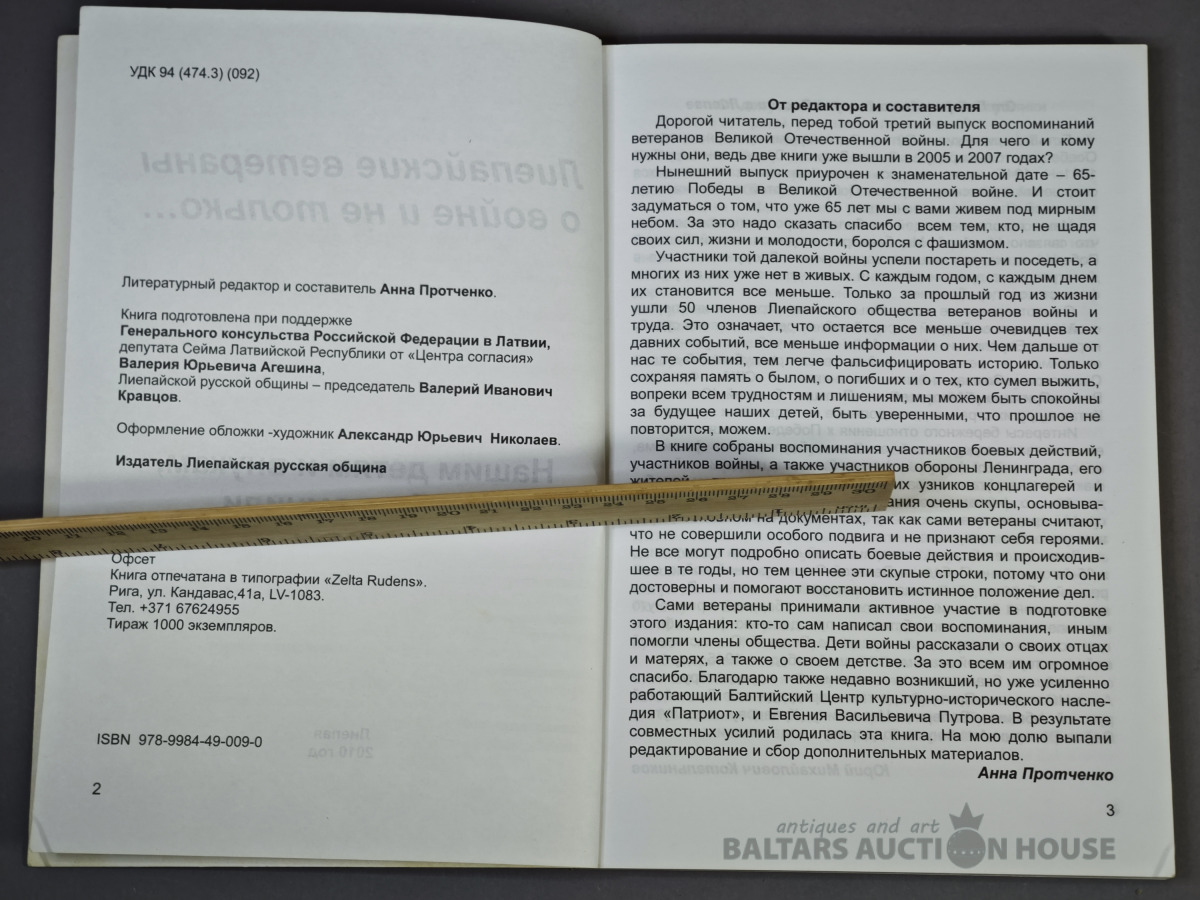 УДК 94 (474.3) (092)
Лиепайские ветераны
о войне и не только...
Литературный редактор и составитель Анна Протченко.
Книга подготовлена при поддержке
Генерального консульства Российской Федерации в Латвии,
депутата Сейма Латвийской Республики от «Центра согласия»
Валерия Юрьевича Агешина,
Лиепайской русской общины – председатель Валерий Иванович
Кравцов.
Оформление обложки -художник Александр Юрьевич Николаев.
Издатель Лиепайская русская община
Офсет
Книга отпечатана в типографии «Zelta Rudens».
Рига, ул. Кандавас,41а, LV-1083.
Тел. +371 67624955
Тираж 1000 экземпляров.
Лиепая
2010 год
ISBN 978-9984-49-009-0
2
От редактора и составителя
Дорогой читатель, перед тобой третий выпуск воспоминаний
ветеранов Великой Отечественной войны. Для чего и кому
нужны они, ведь две книги уже вышли в 2005 и 2007 годах?
Нынешний выпуск приурочен к знаменательной дате – 65-
летию Победы в Великой Отечественной войне. И стоит
задуматься о том, что уже 65 лет мы с вами живем под мирным
небом. За это надо сказать спасибо всем тем, кто, не щадя
своих сил, жизни и молодости, боролся с фашизмом.
Участники той далекой войны успели постареть и поседеть, а
многих из них уже нет в живых. С каждым годом, с каждым днем
их становится все меньше. Только за прошлый год из жизни
ушли 50 членов Лиепайского общества ветеранов войны и
труда. Это означает, что остается все меньше очевидцев тех
давних событий, все меньше информации о них. Чем дальше от
нас те события, тем легче фальсифицировать историю. Только
сохраняя память о былом, о погибших и о тех, кто сумел выжить,
вопреки всем трудностям и лишениям, мы можем быть спокойны
за будущее наших детей, быть уверенными, что прошлое не
повторится, можем.
В книге собраны воспоминания участников боевых действий,
участников войны, а также участников обороны Ленинграда, его
жителей их узников концлагерей и
ания очень скупы, основыва-
на документах, так как сами ветераны считают,
что не совершили особого подвига и не признают себя героями.
Не все могут подробно описать боевые действия и происходив-
шее в те годы, но тем ценнее эти скупые строки, потому что они
достоверны и помогают восстановить истинное положение дел.
Сами ветераны принимали активное участие в подготовке
этого издания: кто-то сам написал свои воспоминания, иным
помогли члены общества. Дети войны рассказали о своих отцах
и матерях, а также о своем детстве. За это всем им огромное
спасибо. Благодарю также недавно возникший, но уже усиленно
работающий Балтийский Центр культурно-исторического насле-
дия «Патриот», и Евгения Васильевича Путрова. В результате
совместных усилий родилась эта книга. На мою долю выпали
редактирование и сбор дополнительных материалов.
Анна Протченко
3
antiques and art
BALTARS AUCTION HOUSE